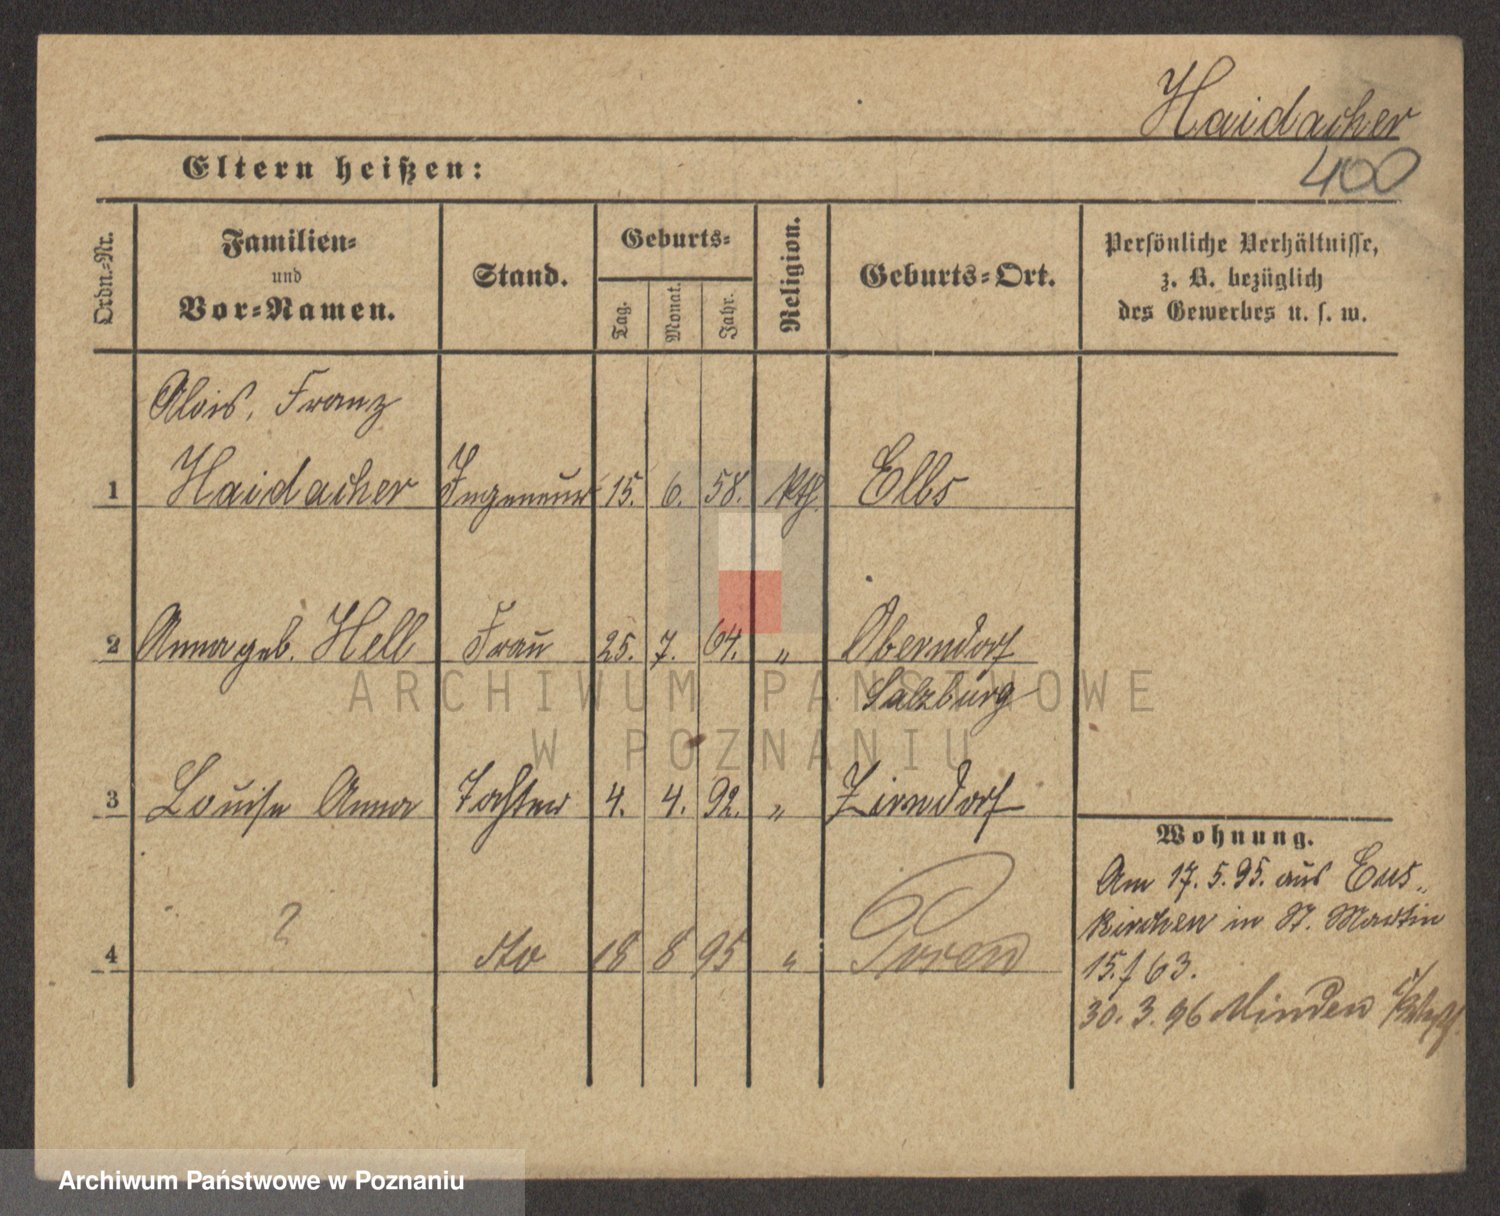 Haidacher
400
Eltern heißen:
Ordn.-Nr.
Familien-
und
Vor-Namen.
Stand.
Geburts-
Tag.
Monat.
Jahr.
Religion.
Geburts-Ort.
Persönliche Verhältnisse,
z. B. bezüglich
des Gewerbes u. s. w.
Alois, Franz
1 Haidacher Ingeneur 15. 6. 58. kth. Elbs
2 Anna geb. Hell Frau 25. 7. 64. " Oberndorf
Salzburg
ARCHIWUM PAŃSTWOWE
W POZNANIU
3 Louise Anna Tochter 4. 4. 92. " Zirndorf
Wohnung.
Am 17. 5. 95. aus Eus-
kirchen in St. Martin
4 ? dto 18 8 95 " Posen
15./63.
30. 3. 96 Minden
Archiwum Państwowe w Poznaniu